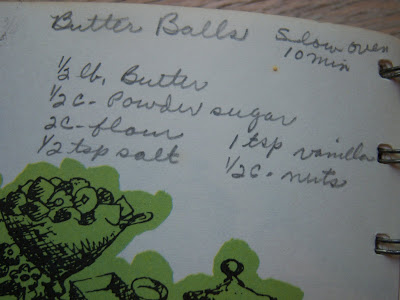 Butter Balls Slow oven
10 min
½ lb. Butter
½ c - Powder sugar
2 c - flour 1 tsp vanilla
½ tsp salt ½ c - nuts